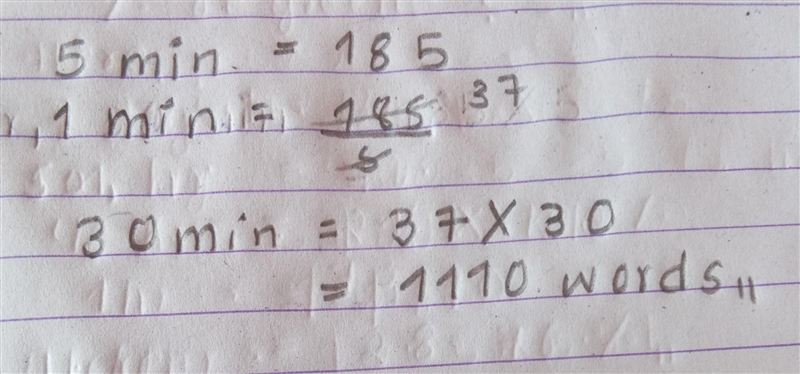 5 min. = 185
1 min. = 185/5 37
30 min = 37 X 30
= 1110 words